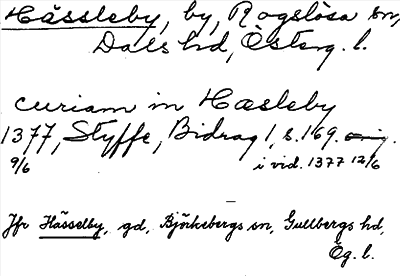 Hässleby, by, Rogslösa sn,
Dals hd, Österg. l.
curiam in Hæsleby
1377, Styffe, Bidrag 1, s. 169.
9/6 i vid. 1377 12/6
Jfr Hässelby, gd, Björkebergs sn, Gullbergs hd,
Ög. l.